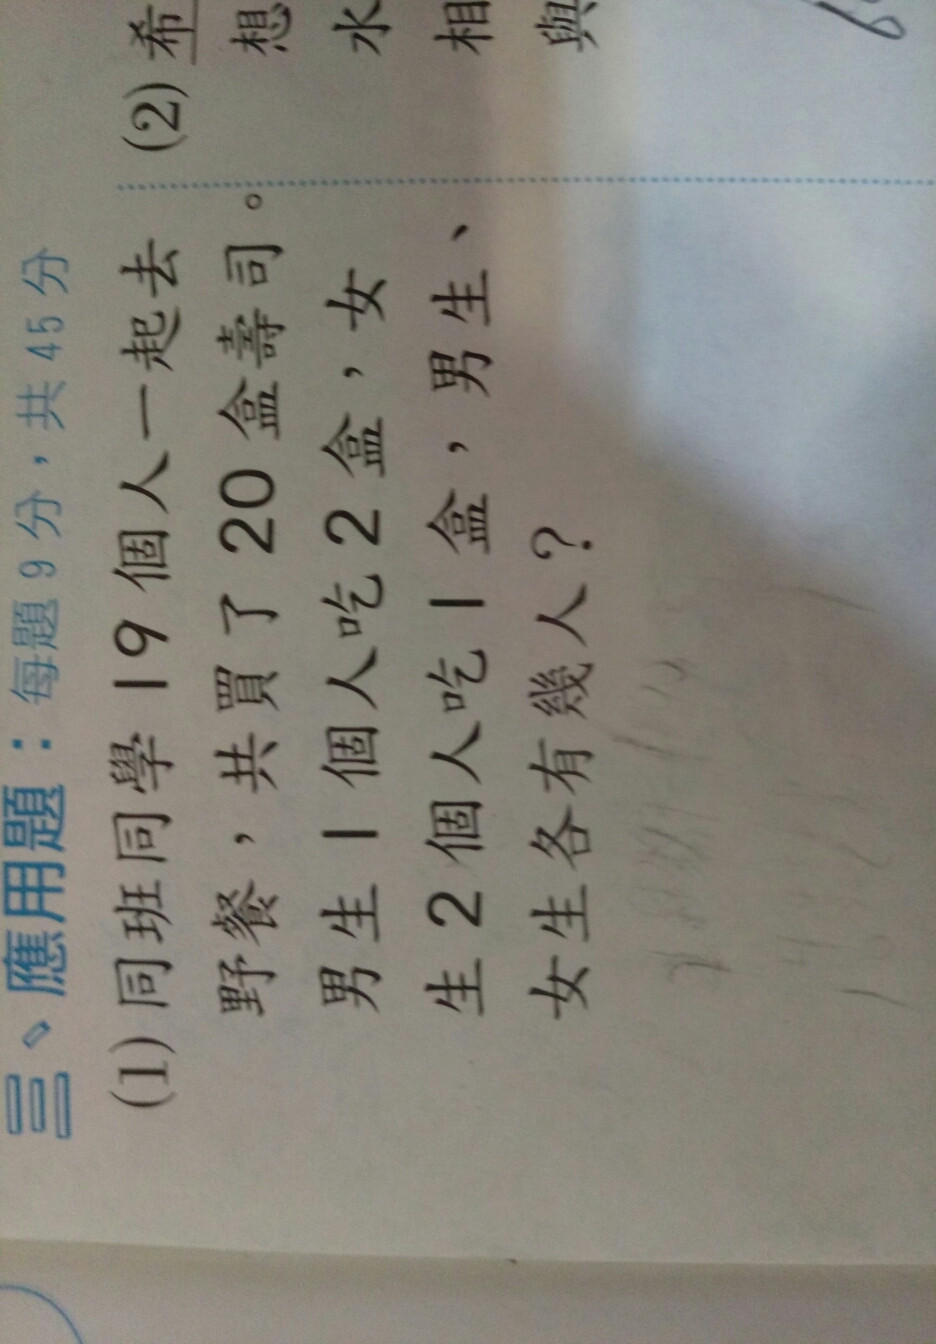 三、應用題：每題9分，共45分
(1) 同班同學19個人一起去
野餐，共買了20盒壽司。
男生1個人吃2盒，女
生2個人吃1盒，男生、
女生各有幾人？
(2) 希
想
水
相
與